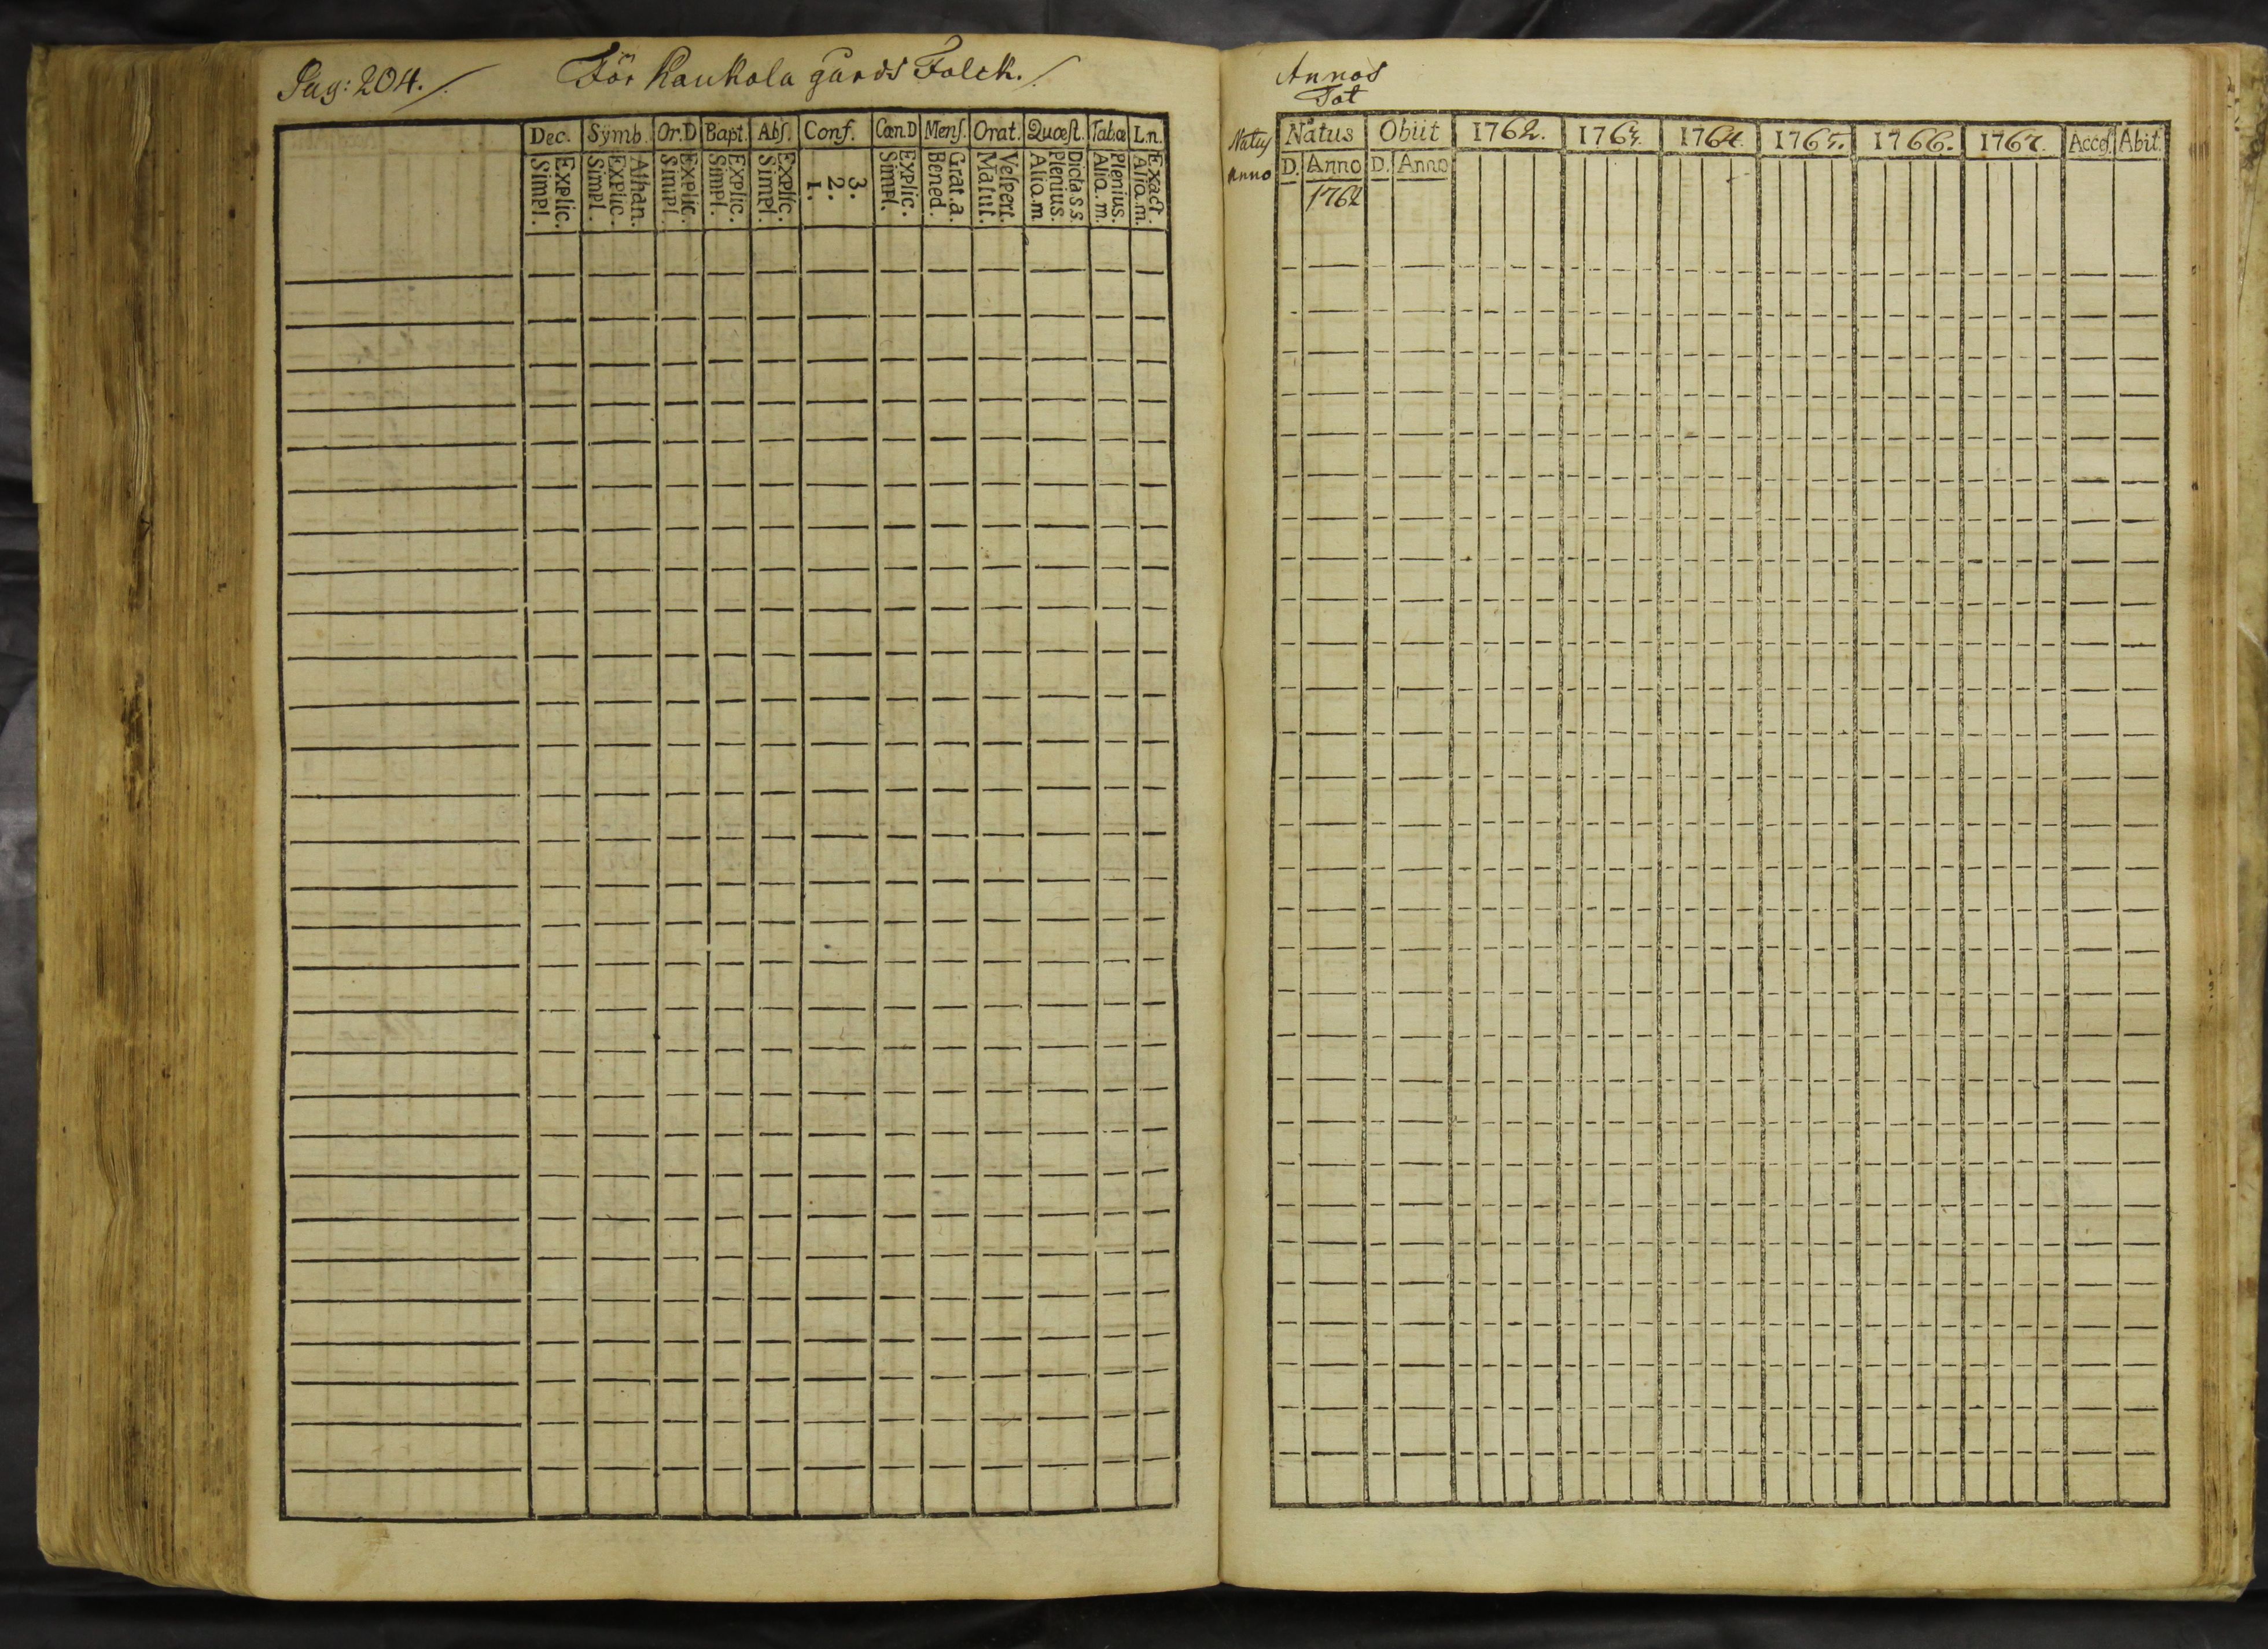 Pag: 204. För Kaukola gårds Folck.
Dec. Symb. Or.D Bapt. Abs. Conf. Cœn.D Mens. Orat. Quœst. Tabœ L.n.
Explic. Simpl.
Athan. Explic. Simpl.
Explic. Simpl.
Explic. Simpl.
Explic. Simpl.
3. 2. 1.
Explic. Simpl.
Grat.a. Bened.
Vespert. Matut.
Dicta s s. Plenius. Aliq.m
Plenius. Aliq.m.
Exact. Aliq.m.
Annos
Tot
Natus
Anno
Natus Obiit 1762. 1763. 1764. 1765. 1766. 1767. Acces. Abit.
D. Anno D. Anno
1762